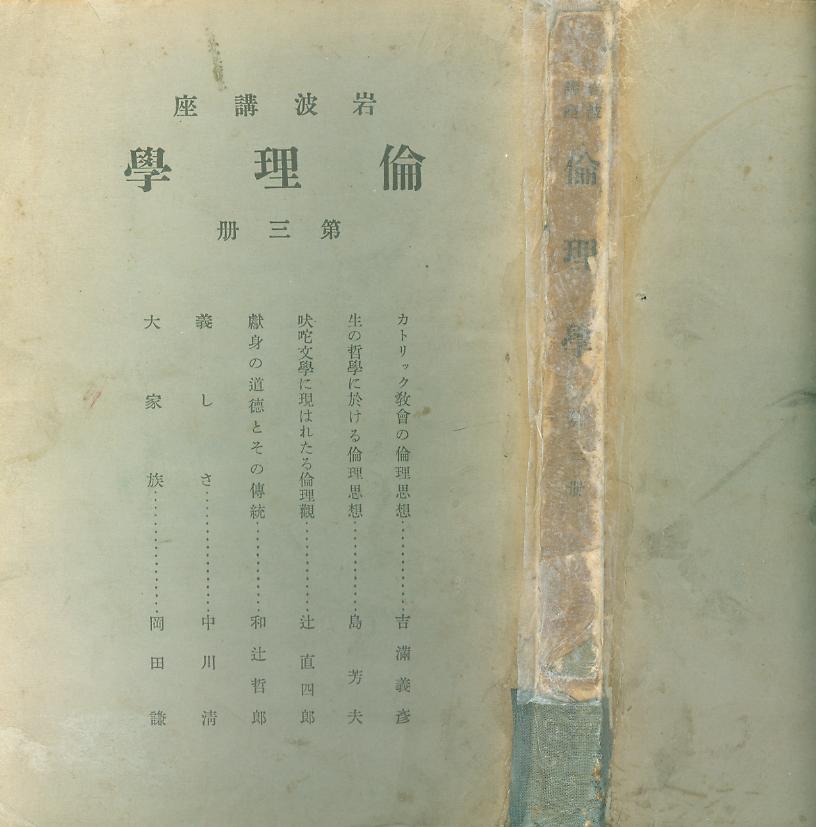 岩波講座
倫理學
第三册
カトリック敎會の倫理思想…………吉滿義彥
生の哲學に於ける倫理思想…………島芳夫
吠陀文學に現はれたる倫理觀…………辻直四郎
獻身の道德とその傳統…………和辻哲郎
義しさ…………中川淸
大家族…………岡田謙
倫理學